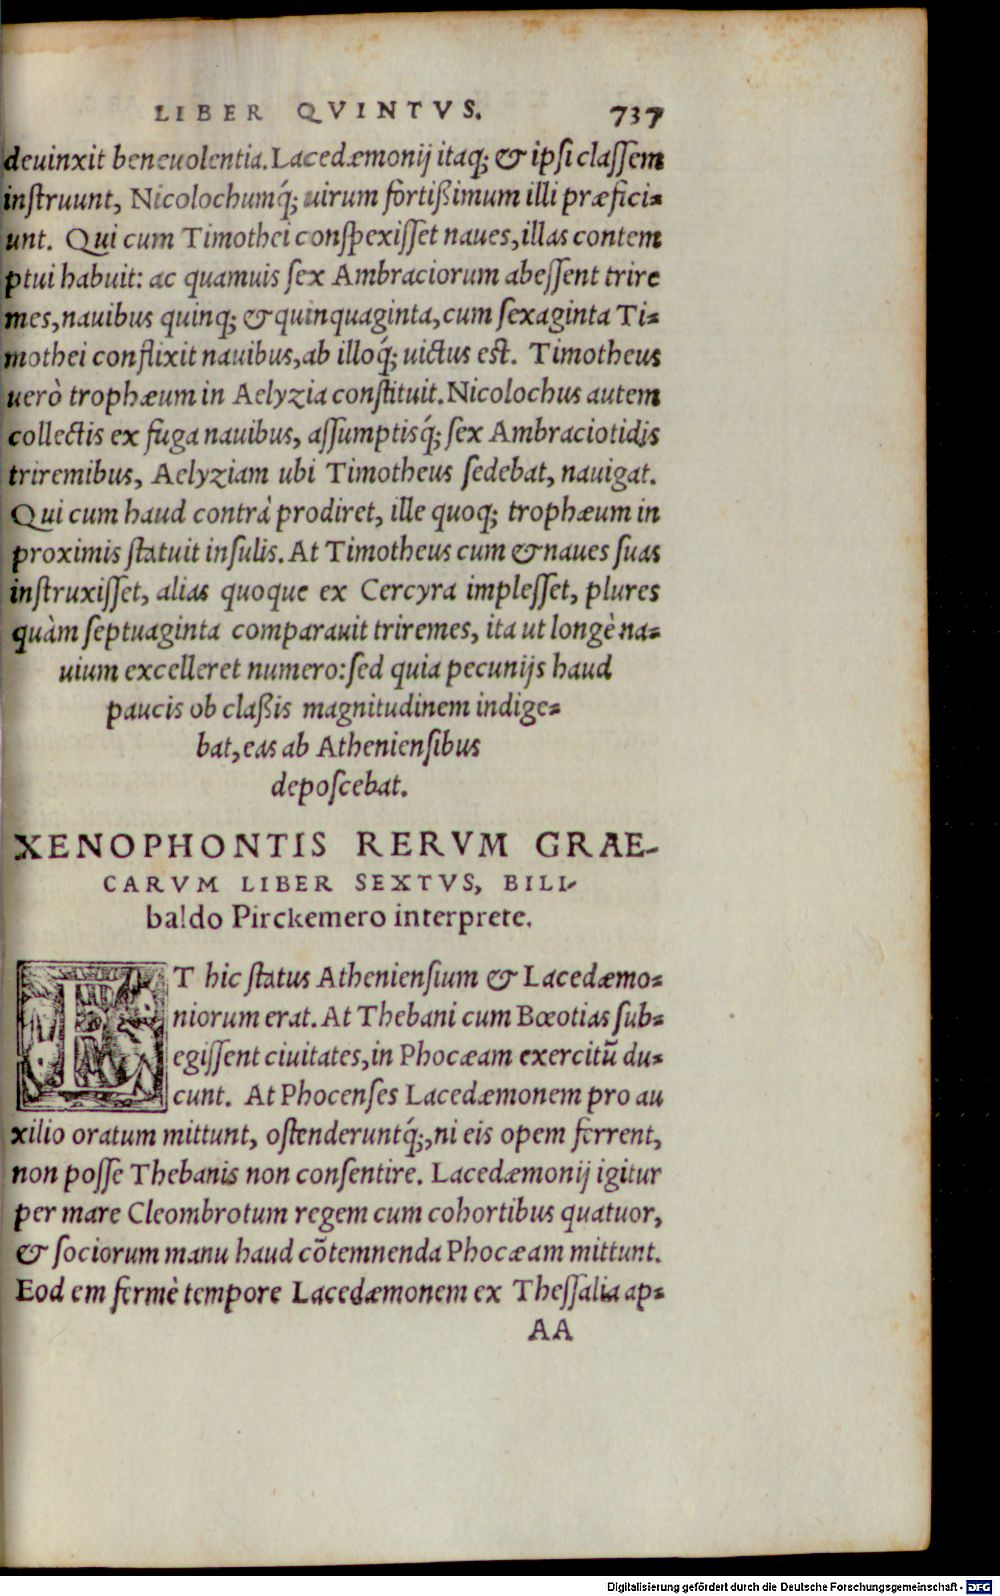 LIBER QVINTVS. 737
deuinxit beneuolentia. Lacedæmonij itaq; & ipsi classem
instruunt, Nicolochumq́; uirum fortißimum illi præfici-
unt. Qui cum Timothei conspexisset naues, illas contem
ptui habuit: ac quamuis sex Ambraciorum abessent trire
mes, nauibus quinq; & quinquaginta, cum sexaginta Ti-
mothei conflixit nauibus, ab illoq́; uictus est. Timotheus
uerò trophæum in Aelyzia constituit. Nicolochus autem
collectis ex fuga nauibus, assumptisq́; sex Ambraciotidis
triremibus, Aelyziam ubi Timotheus sedebat, nauigat.
Qui cum haud contrà prodiret, ille quoq; trophæum in
proximis statuit insulis. At Timotheus cum & naues suas
instruxisset, alias quoque ex Cercyra implesset, plures
quàm septuaginta comparauit triremes, ita ut longè na-
uium excelleret numero: sed quia pecunijs haud
paucis ob claßis magnitudinem indige-
bat, eas ab Atheniensibus
deposcebat.
XENOPHONTIS RERVM GRAE-
CARVM LIBER SEXTVS, BILI-
baldo Pirckemero interprete.
ET hic status Atheniensium & Lacedæmo-
niorum erat. At Thebani cum Bœotias sub-
egissent ciuitates, in Phocæam exercitũ du-
cunt. At Phocenses Lacedæmonem pro au
xilio oratum mittunt, ostenderuntq́;, ni eis opem ferrent,
non posse Thebanis non consentire. Lacedæmonij igitur
per mare Cleombrotum regem cum cohortibus quatuor,
& sociorum manu haud cõtemnenda Phocæam mittunt.
Eod em fermè tempore Lacedæmonem ex Thessalia ap-
AA
Digitalisierung gefördert durch die Deutsche Forschungsgemeinschaft - DFG